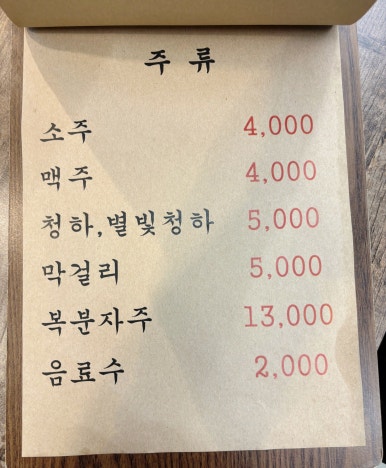 주류
소주 4,000
맥주 4,000
청하,별빛청하 5,000
막걸리 5,000
복분자주 13,000
음료수 2,000